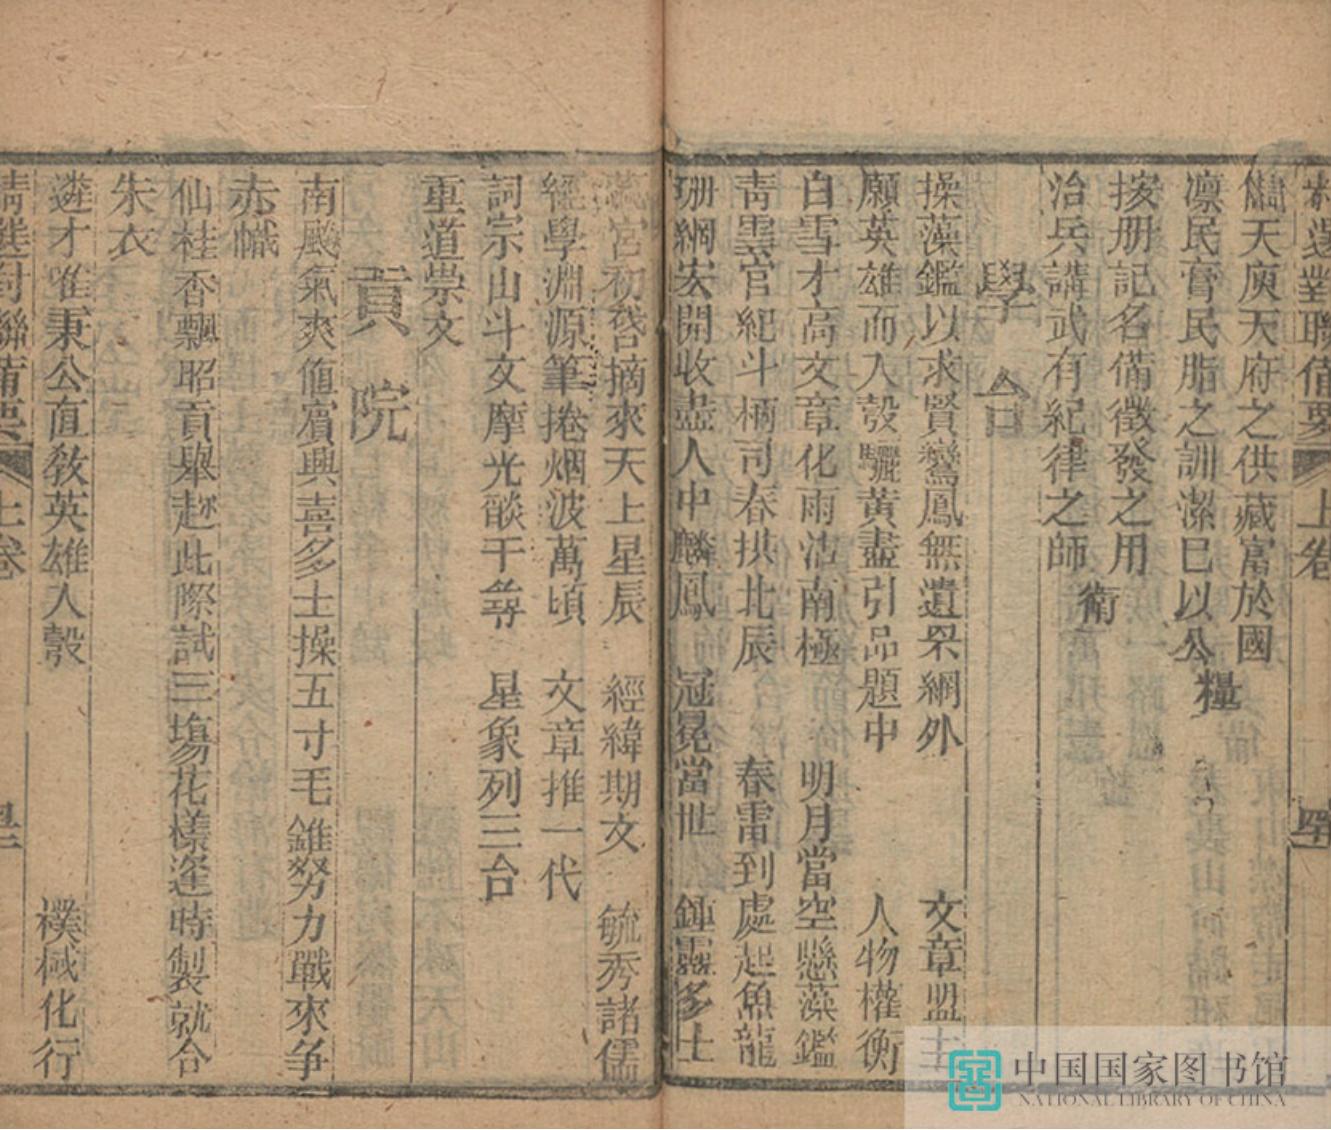 精選對聯備要 上卷
儲天庾天府之供藏富於國
凛民膏民脂之訓潔巳以公 糧
按册記名備徵發之用
治兵講武有紀律之師 衛
學 台
操藻鑑以求賢鸞鳳無遺罘網外 文章盟主
願英雄而入彀驪黃盡引品題中 人物權衡
白雪才高文章化雨沾南極 明月當空懸藻鑑
青雲官紀斗柄司春拱北辰 春雷到處起魚龍
珊網宏開收盡人中麟鳳 冠冕當世 鍾靈多士
宮初啓摘來天上星辰 經緯期文 毓秀諸儒
經學淵源筆捲烟波萬頃 文章推一代
詞宗山斗文摩光燄千尋 星象列三台
重道崇文
貢 院
南颷氣爽值賓興喜多士操五寸毛錐努力戰來爭
赤幟
仙桂香飄昭貢舉趂此際試三塲花樣逢時製就合
朱衣
遴才唯秉公直教英雄入彀 樸棫化行
精選對聯備要 上卷
中国国家图书馆
NATIONAL LIBRARY OF CHINA